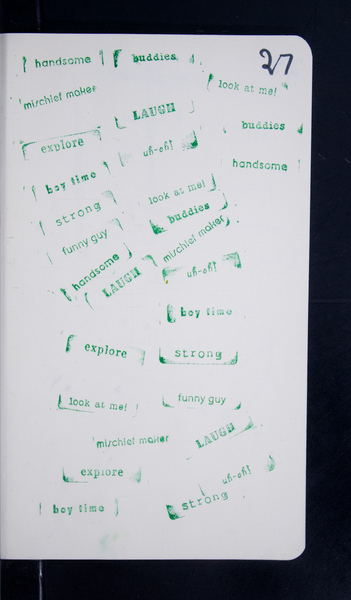 27
handsome
buddies
look at me!
mischief maker
LAUGH
buddies
explore
uh-oh!
handsome
boy time
look at me!
strong
buddies
funny guy
mischief maker
handsome
LAUGH
uh-oh!
boy time
explore
strong
look at me!
funny guy
mischief maker
LAUGH
explore
uh-oh!
boy time
strong